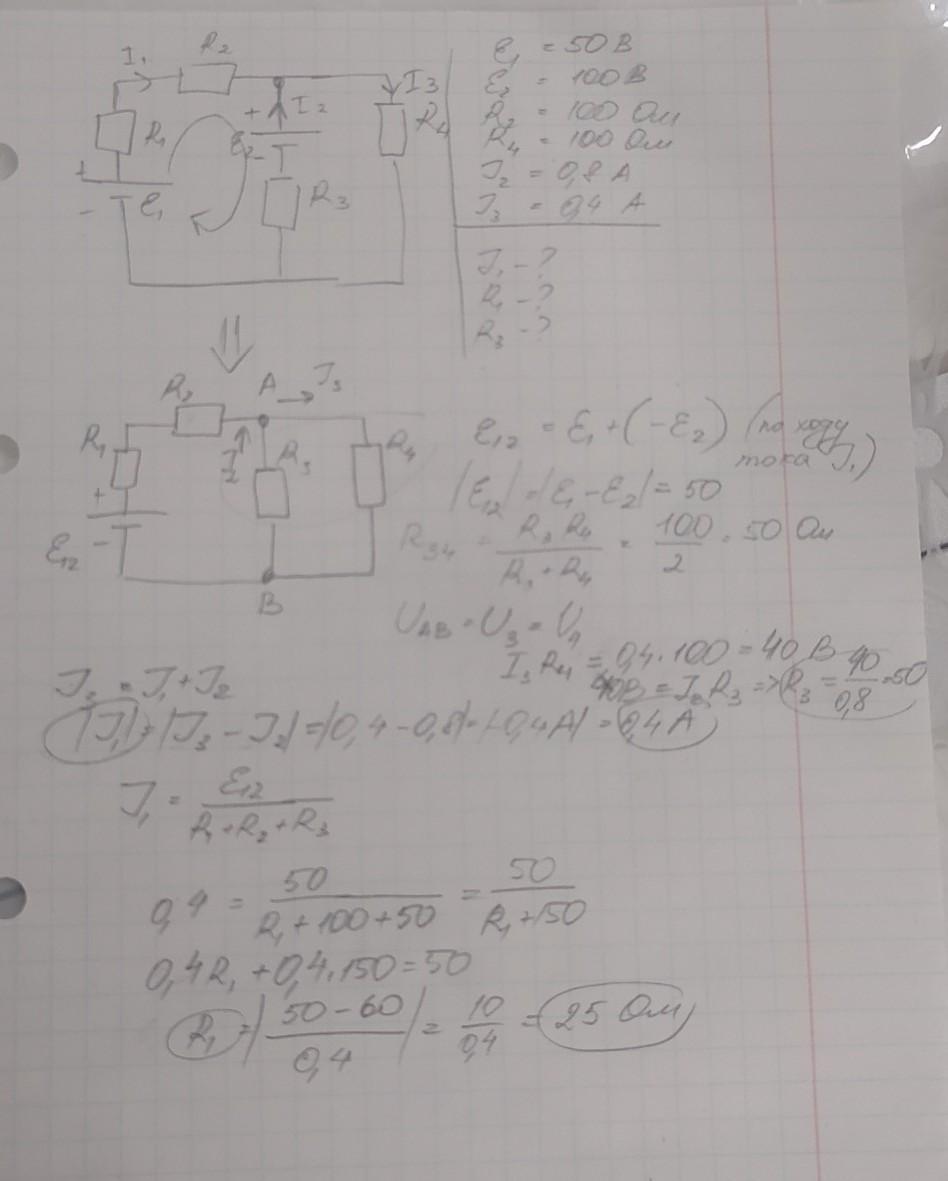 I₁ R₂
I₂ I₃
R₁ R₄
+ ℰ₂ -
+ - ℰ₁ R₃
ℰ₁ = 50 В
ℰ₂ = 100 В
R₂ = 100 Ом
R₄ = 100 Ом
I₂ = 0,8 А
I₃ = 0,4 А
I₁ - ?
R₁ - ?
R₃ - ?
⇓
R₂ A → I₃
R₁ I R₃ R₄
+ -
ℰ₁₂
B
ℰ₁₂ = ℰ₁ + (-ℰ₂) (по ходу
тока I₁)
|ℰ₁₂| = |ℰ₁ - ℰ₂| = 50
R₃₄ = R₃ R₄ / R₃ + R₄ = 100 / 2 = 50 Ом
U_AB = U₃ = U₄
I₃ R₄ = 0,4 · 100 = 40 В
40 В = I₂ R₃ => R₃ = 40 / 0,8 = 50
I₃ = I₁ + I₂
|I₁| = |I₃ - I₂| = |0,4 - 0,8| = |-0,4 А| = 0,4 А
I₁ = ℰ₁₂ / R₁ + R₂ + R₃
0,4 = 50 / R₁ + 100 + 50 = 50 / R₁ + 150
0,4 R₁ + 0,4 · 150 = 50
R₁ = |50 - 60 / 0,4| = 10 / 0,4 = 25 Ом